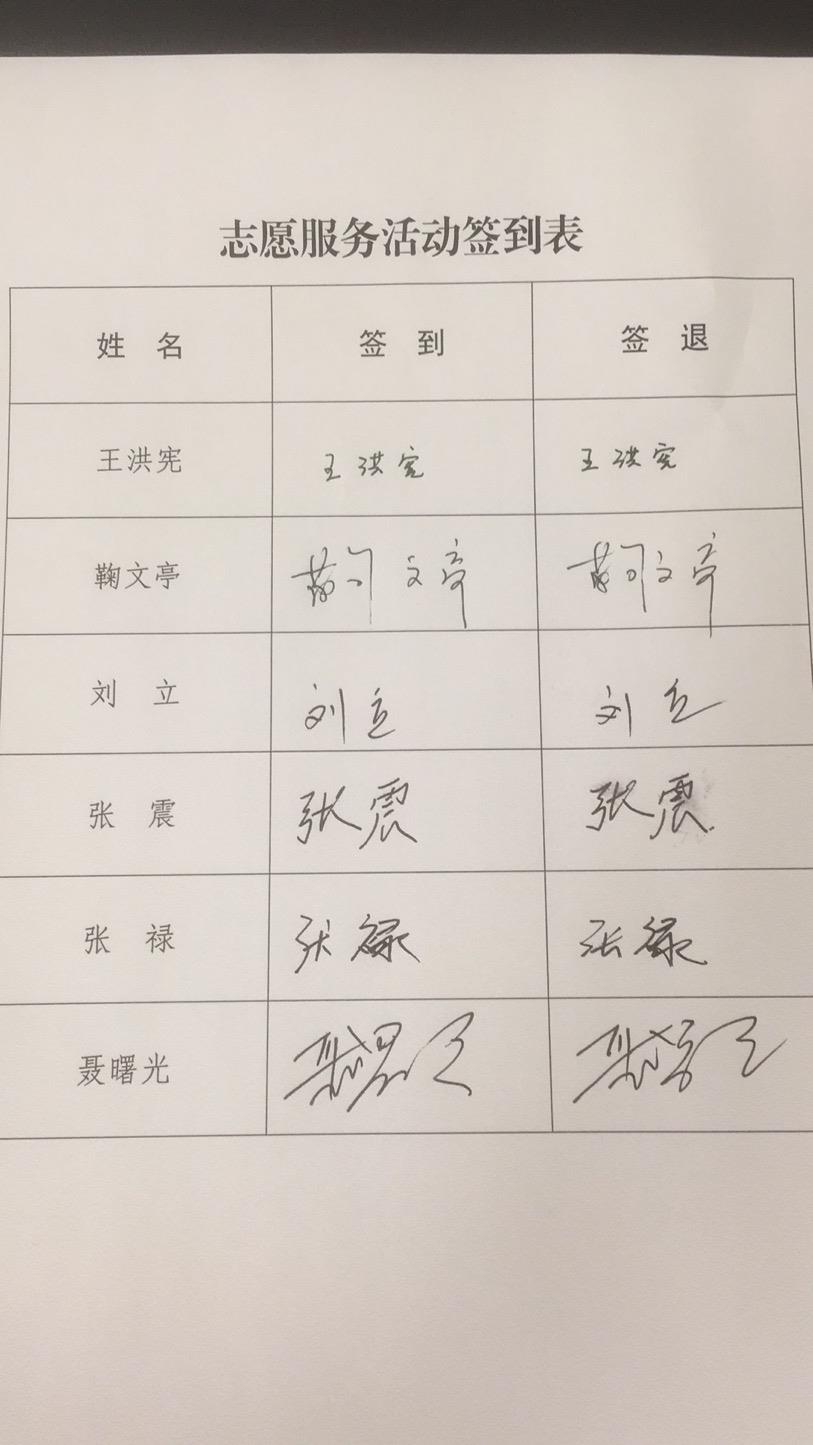 志愿服务活动签到表
姓 名 签 到 签 退
王洪宪 王洪宪 王洪宪
鞠文亭 鞠文亭 鞠文亭
刘 立 刘立 刘立
张 震 张震 张震
张 禄 张禄 张禄
聂曙光 聂曙光 聂曙光